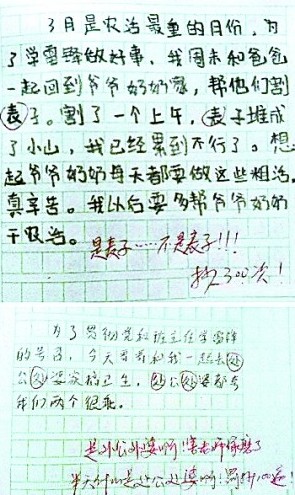 3月是农活最重的月份，为
了学雷锋做好事，我周末和爸爸
一起回到爷爷奶奶家，帮他们割
表子。割了一个上午，表子堆成
了小山，我已经累到不行了。想
起爷爷奶奶每天都要做这些粗活，
真辛苦。我以后要多帮爷爷奶奶
干农活。
是麦子……不是表子!!!
抄300次！
为了贯彻党和班主任学雷锋
的号召，今天爸爸和我一起去处
公处婆家搞卫生，处公处婆都夸
我们两个很乖。
是外公外婆啊！害老师琢磨了
半天什么是处公处婆啊！罚抄100遍！